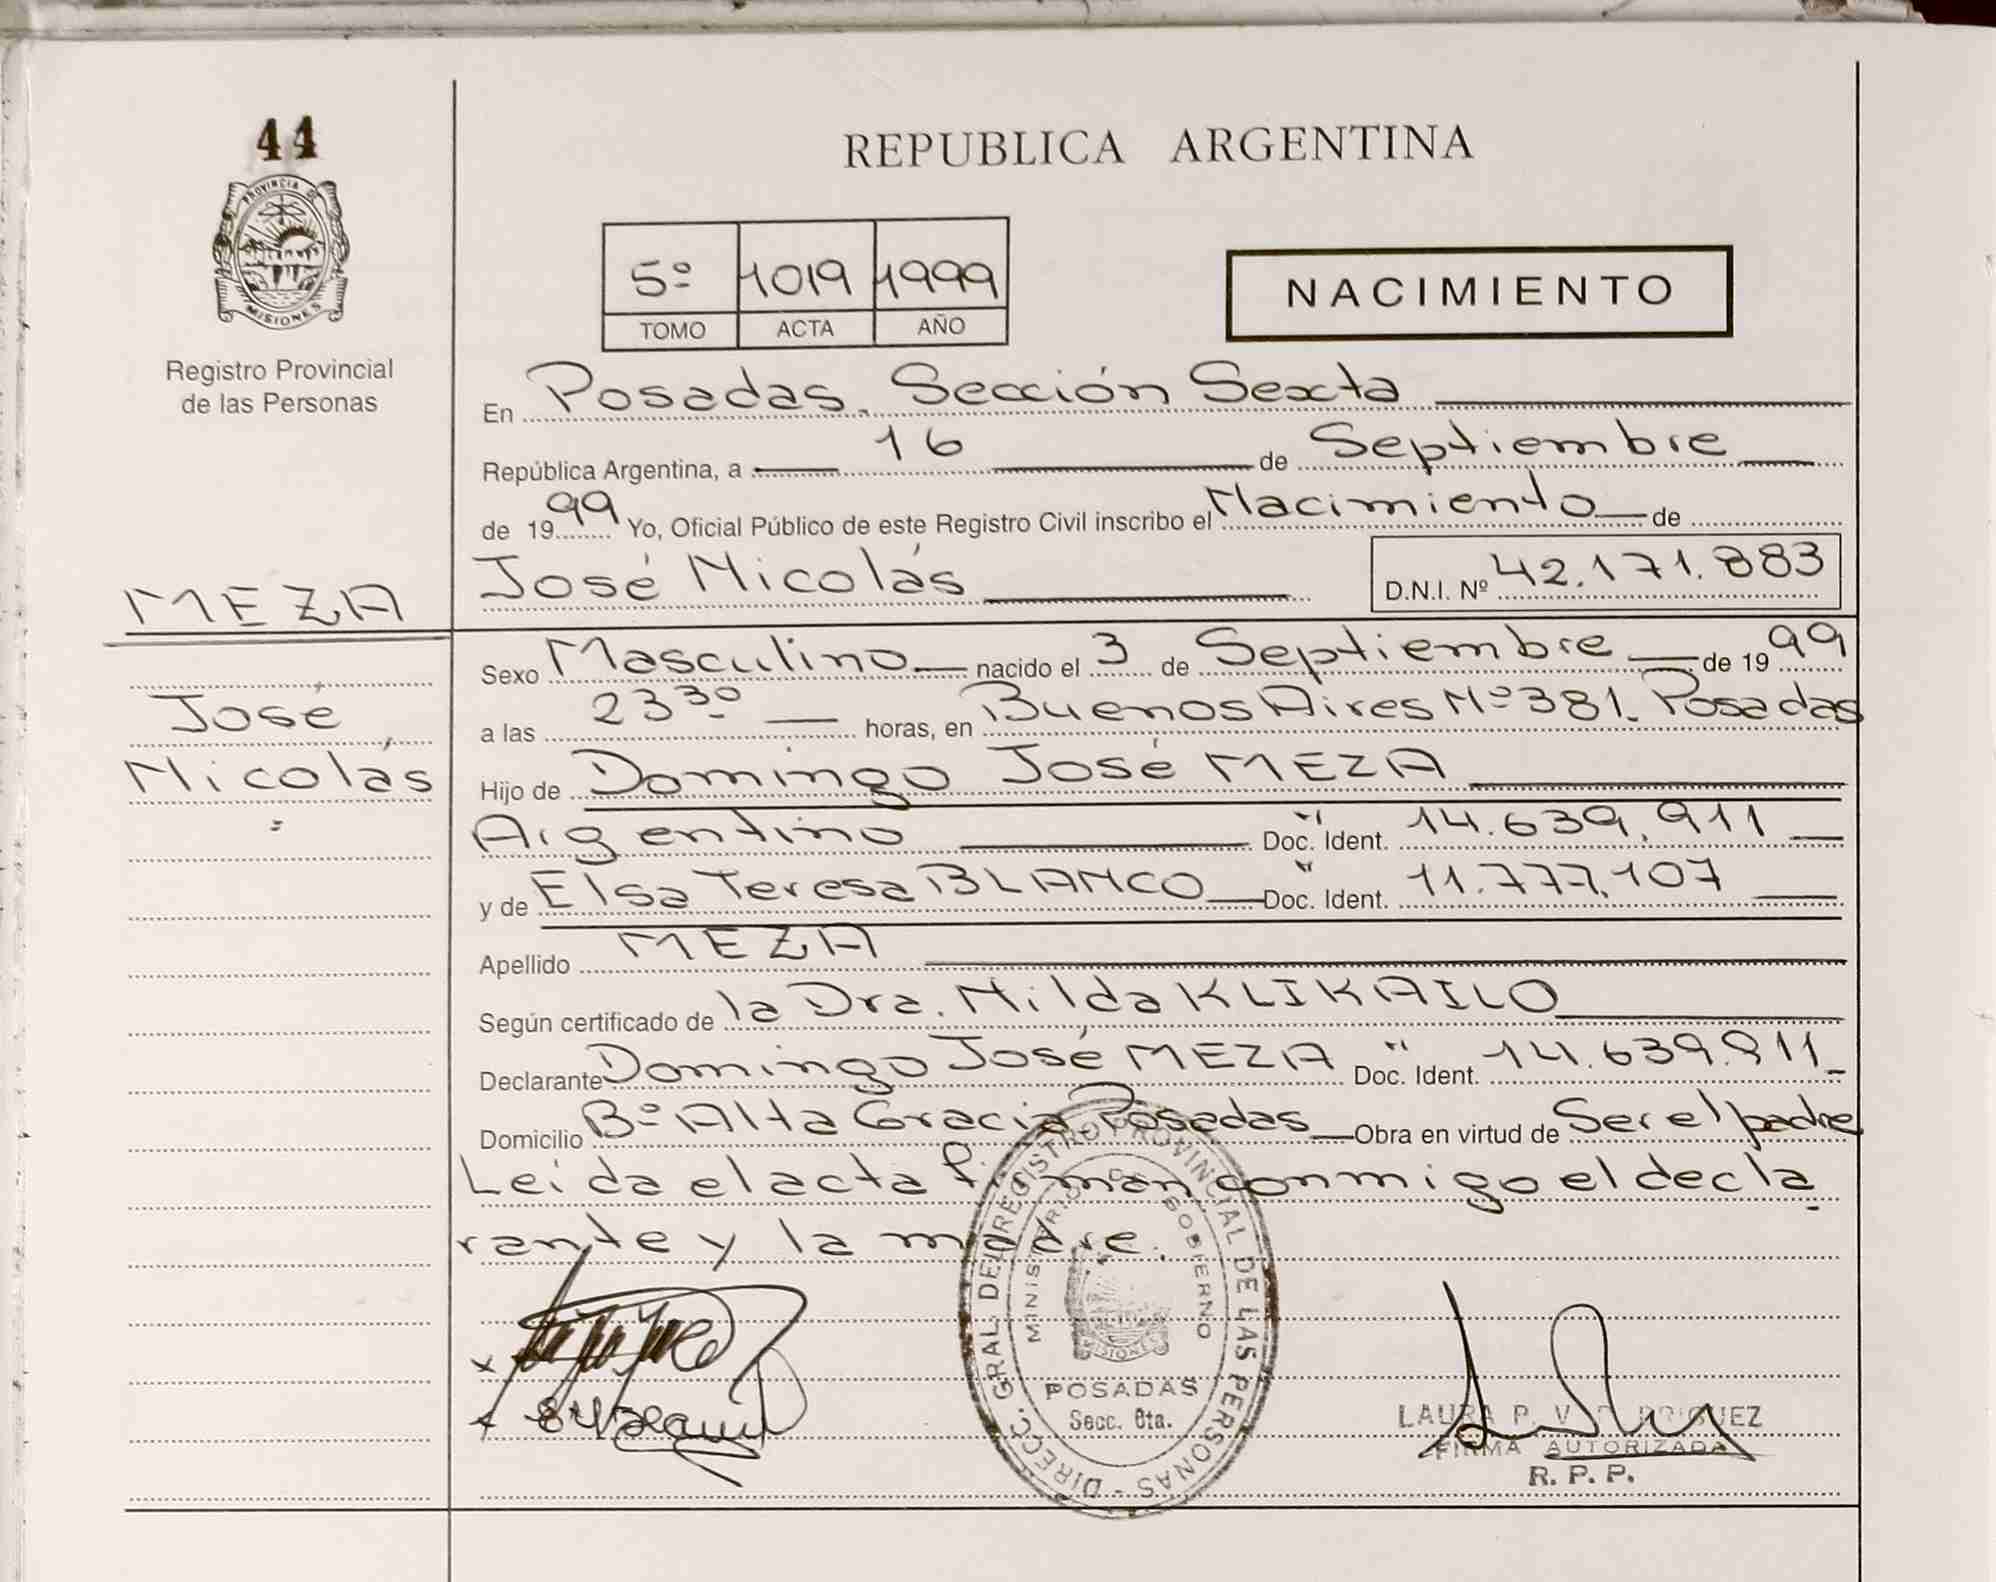 44
PROVINCIA D
MISIONES
Registro Provincial
de las Personas
REPUBLICA ARGENTINA
5º 1019 1999
TOMO ACTA AÑO
NACIMIENTO
En Posadas, Sección Sexta
República Argentina, a 16 de Septiembre
de 1999 Yo, Oficial Público de este Registro Civil inscribo el Nacimiento de
José Nicolás D.N.I. Nº 42.171.883
MEZA
José
Nicolás
Sexo Masculino nacido el 3 de Septiembre de 1999
a las 23 30 horas, en Buenos Aires Nº 381. Posadas
Hijo de Domingo José MEZA
Argentino Doc. Ident. 14.639.911
y de Elsa Teresa BLANCO " Doc. Ident. 11.777.107
Apellido MEZA
Según certificado de la Dra. Nilda KLIKAILO
Declarante Domingo José MEZA " Doc. Ident. 14.639.911
Domicilio Bº Alta Gracia. Posadas Obra en virtud de Ser el padre
Leída el acta firman conmigo el decla
rante y la madre.
DIRECC. GRAL. DEL REGISTRO PROVINCIAL DE LAS PERSONAS
MINISTERIO DE GOBIERNO
MISIONES
POSADAS
Secc. 6ta.
LAURA P. V
FIRMA AUTORIZADA
R. P. P.